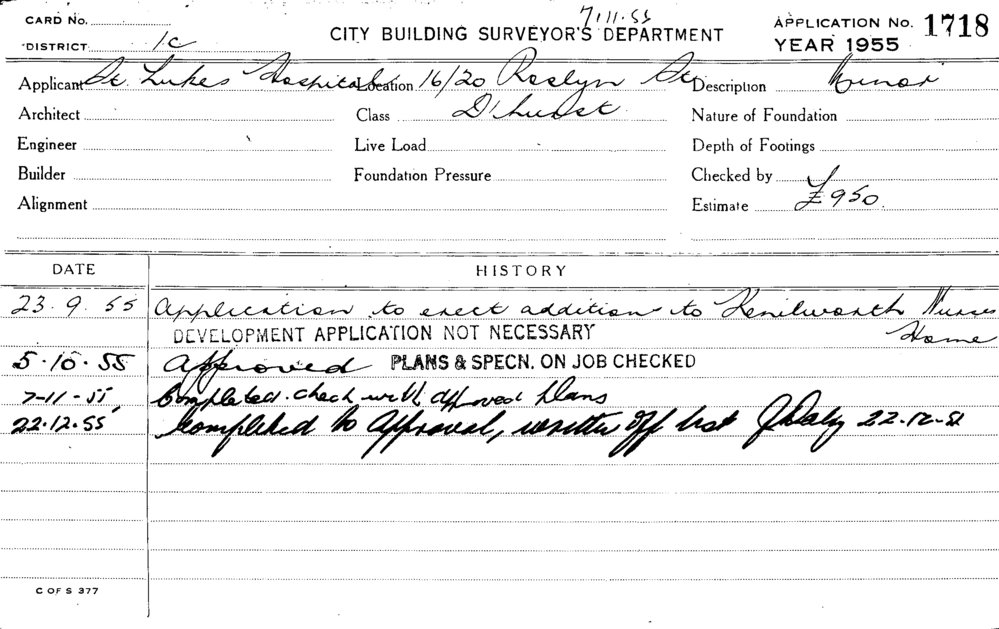 7.11.55
CARD No.
CITY BUILDING SURVEYOR'S DEPARTMENT
APPLICATION No. 1718
DISTRICT 1c
YEAR 1955
Applicant St. Lukes Hospital Location 16/20 Roslyn St. Description Minor
Architect Class D'hurst Nature of Foundation
Engineer Live Load Depth of Footings
Builder Foundation Pressure Checked by
Alignment Estimate £950.
DATE HISTORY
23.9.55 Application to erect additions to Kenilworth Nurses
DEVELOPMENT APPLICATION NOT NECESSARY Home
5.10.55 Approved PLANS & SPECN. ON JOB CHECKED
7-11-55, Completed. check with approved plans
22.12.55 Completed to Approval, written off list 22-12-55
C OF S 377